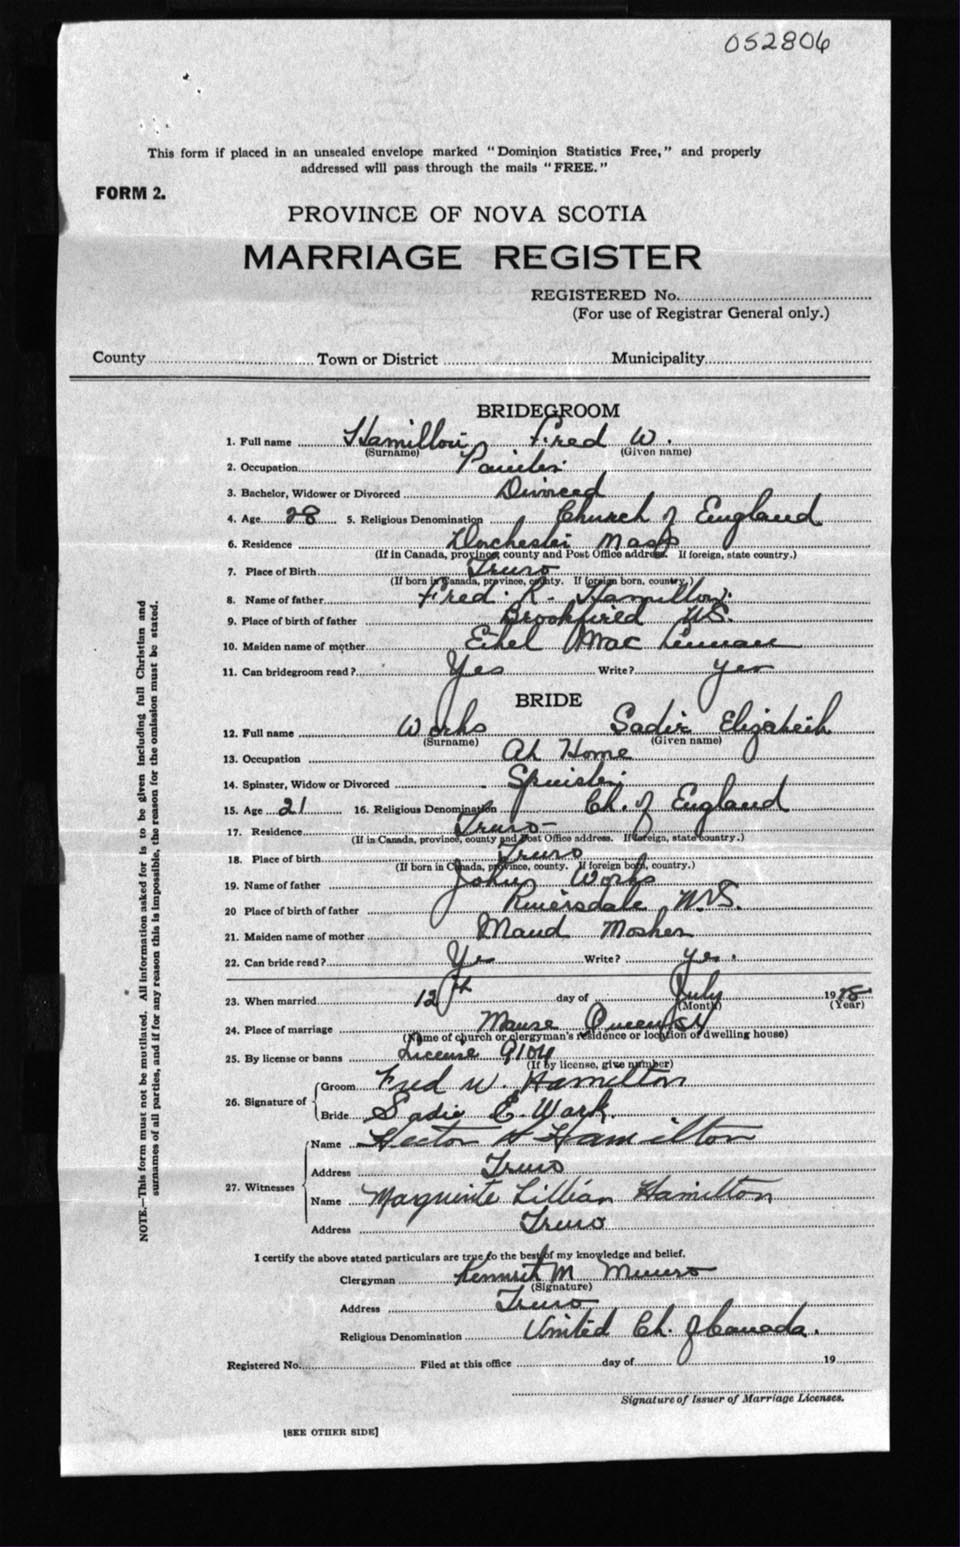 052806
This form if placed in an unsealed envelope marked "Dominion Statistics Free," and properly
addressed will pass through the mails "FREE."
FORM 2.
PROVINCE OF NOVA SCOTIA
MARRIAGE REGISTER
REGISTERED No.
(For use of Registrar General only.)
County Town or District Municipality
BRIDEGROOM
1. Full name Hamilton Fred W.
(Surname) (Given name)
2. Occupation Painter
3. Bachelor, Widower or Divorced Divorced
4. Age 28 5. Religious Denomination Church of England
6. Residence Dorchester Mass
(If in Canada, province county and Post Office address. If foreign, state country.)
7. Place of Birth Truro
(If born in Canada, province, county. If foreign born, country.)
8. Name of father Fred. R. Hamilton
9. Place of birth of father Brookfield N.S.
10. Maiden name of mother Ethel MacLennan
11. Can bridegroom read? Yes Write? yes
BRIDE
12. Full name Works Sadie Elizabeth
(Surname) (Given name)
13. Occupation At Home
14. Spinster, Widow or Divorced Spinster
15. Age 21 16. Religious Denomination Ch. of England
17. Residence Truro
(If in Canada, province, county and Post Office address. If foreign, state country.)
18. Place of birth Truro
(If born in Canada, province, county. If foreign born, country.)
19. Name of father John Works
20 Place of birth of father Riversdale N.S.
21. Maiden name of mother Maud Mosher
22. Can bride read? Yes Write? yes.
23. When married 12th day of July 19
(Month) (Year)
24. Place of marriage Manse Queen St
(Name of church or clergyman's residence or location of dwelling house)
25. By license or banns License 9104
(If by license, give number)
26. Signature of Groom Fred W. Hamilton
Bride Sadie E. Work.
27. Witnesses Name Hector H Hamilton
Address Truro
Name Marguerite Lillian Hamilton
Address Truro
I certify the above stated particulars are true to the best of my knowledge and belief.
Clergyman Kenneth M Munro
(Signature)
Address Truro
Religious Denomination United Ch. of Canada.
Registered No. Filed at this office day of 19
Signature of Issuer of Marriage Licenses.
[SEE OTHER SIDE]
NOTE.—This form must not be mutilated. All information asked for is to be given including full Christian and
surnames of all parties, and if for any reason this is impossible, the reason for the omission must be stated.